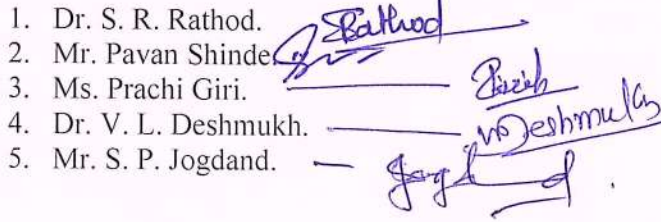 1. Dr. S. R. Rathod. SRathod
2. Mr. Pavan Shinde
3. Ms. Prachi Giri.
4. Dr. V. L. Deshmukh. VDeshmukh
5. Mr. S. P. Jogdand.